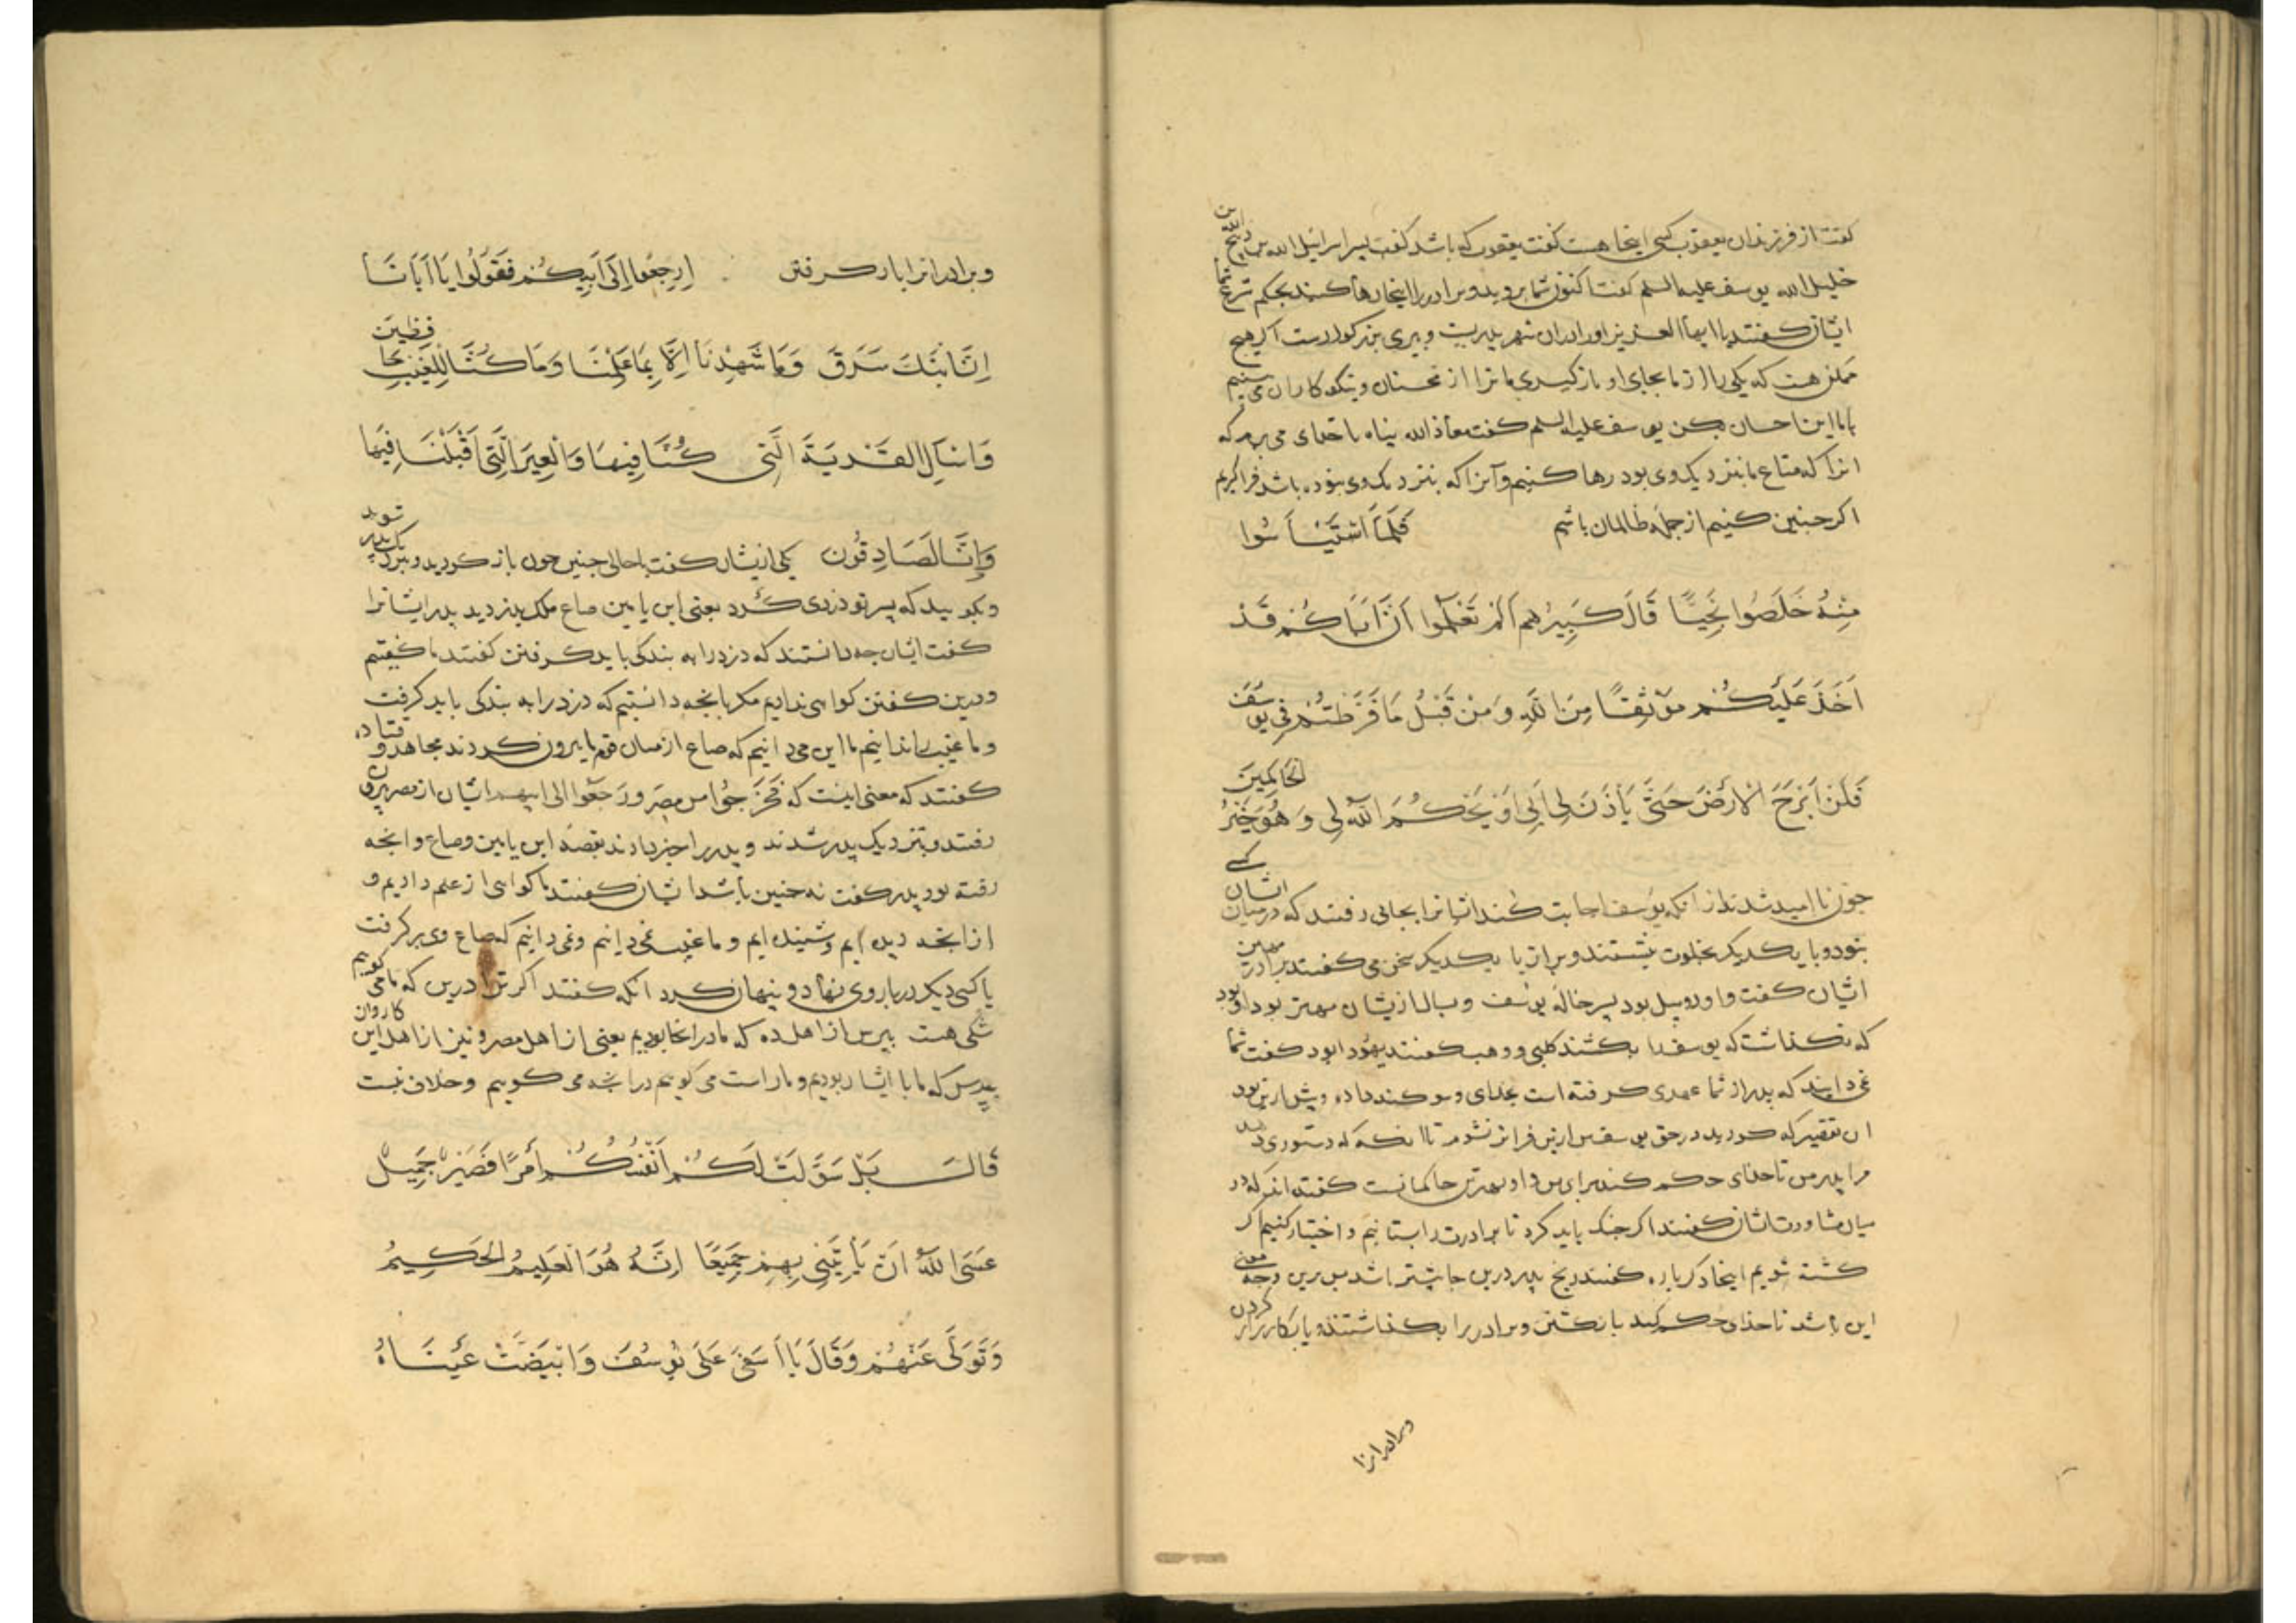 گفت از فرزندان یعقوب کسی اینجا هست گفت یعقوب که باشد گفت اسرائیل الله بن ذبیح الله بن
خلیل الله یوسف علیه السلم گفت اکنون شما بروید و برادر را اینجا رها کنید بحکم شرع شما
ایشان گفتند یا ایها العزیز او را پدریست و پیری بزرگوارست اگر هیچ
ممکن هست که یکی را از ما بجای او بازگیری ما ترا از محسنان و نیکوکاران می بینیم
با ما این احسان بکن یوسف علیه السلم گفت معاذ الله پناه با خدای می برم که
انرا که متاع ما بنزدیک وی بود رها کنیم وآنرا که بنزدیک وی نبوده باشد فرا گیریم
اگر چنین کنیم از جمله ظالمان باشم فَلَمَّا اسْتَيْأَسُوا
مِنْهُ خَلَصُوا نَجِيًّا قَالَ كَبِيرُهُم أَلَمْ تَعْلَمُوا أَنَّ أَبَاكُمْ قَدْ
أَخَذَ عَلَيْكُمْ مَوْثِقًا مِنَ اللَّهِ وَمِنْ قَبْلُ مَا فَرَّطْتُمْ فِي يُوسُفَ
فَلَنْ أَبْرَحَ الْأَرْضَ حَتَّى يَأْذَنَ لِي أَبِي أَوْ يَحْكُمَ اللَّهُ لِي وَهُوَ خَيْرُ الْحَاكِمِينَ
چون نا امید شدند از انکه یوسف اجابت کند ایشانرا بجایی رفتند که در میان ایشان کسی
نبود و با یکدیگر بخلوت بنشستند و براز با یکدیگر سخن می گفتند برادر مهین
ایشان گفت و او روبیل بود پسر خاله یوسف و بسال ازیشان مهتر بود او بود
که نگذاشت که یوسف را بکشند کلبی و وهب گفتند یهودا بود گفت شما
نمی دانید که پدر از شما عهدی گرفته است بخدای و سوگند داده و پیش ازین بود
ان تقصیر که کردید در حق یوسف من ازین فراتر نشوم تا انکه که دستوری دهد
مرا پدر من تا خدای حکم کند برای من و او بهترین حاکمانست گفته اند که در
میان مشاورت ایشان گفتند اگر جنگ باید کرد تا برادرت را بستانیم و اختیار کنیم اگر
کشته شویم اینجا دگر باره گفتند رنج پدر درین جا بیشتر باشد پس برین وجه معنی
این باشد تا خدای حکم کند با کشتن و برادر را بگذاشتند و یا بکارزار کردن
وبرادرانرا
وبرادرانرا باز گرفتن ارْجِعُوا إِلَى أَبِيكُمْ فَقُولُوا يَا أَبَانَا
إِنَّ ابْنَكَ سَرَقَ وَمَا شَهِدْنَا إِلَّا بِمَا عَلِمْنَا وَمَا كُنَّا لِلْغَيْبِ حَافِظِينَ
وَاسْأَلِ الْقَرْيَةَ الَّتِي كُنَّا فِيهَا وَالْعِيرَ الَّتِي أَقْبَلْنَا فِيهَا
وَإِنَّا لَصَادِقُونَ یکی ازیشان گفت با حالی چنین چون باز گردید و بنزدیک پدر شوید
و بگویید که پسر تو دزدی کرد یعنی ابن یامین صاع ملک بدزدید پدر ایشانرا
گفت ایشان چه دانستند که دزد را به بندگی باید گرفتن گفتند ما گفتیم
ودرین گفتن گواهی ندادیم مگر بانچه دانستیم که دزد را به بندگی باید گرفت
و ما غیب ندانیم ما این می دانیم که صاع از میان قوم ما بیرون کردند مجاهد و قتاده
گفتند که معنی اینست که فخرجوا من مصر ورجعوا الی ابیهم ایشان از مصر بیرون
رفتند و بنزدیک پدر شدند و پدر را خبر دادند بقصه ابن یامین و صاع و انچه
رفته بود پدر گفت نه چنین باشد ایشان گفتند ما گواهی از علم دادیم و
از انچه دیده ایم و شنیده ایم و ما غیب نمی دانیم ونمی دانیم که صاع وی برگرفت
یا کسی دیگر در بار وی نهاد و پنهان کرد انکه گفتند اگر ترا درین که ما می گوییم
شکی هست بپرس از اهل ده که ما در انجا بودیم یعنی از اهل مصر و نیز از اهل این کاروان
بپرس که ما با ایشان بودیم و ما راست می گوییم در انچه می گوییم وخلاف نیست
قَالَ بَلْ سَوَّلَتْ لَكُمْ أَنْفُسُكُمْ أَمْرًا فَصَبْرٌ جَمِيلٌ
عَسَى اللَّهُ أَنْ يَأْتِيَنِي بِهِمْ جَمِيعًا إِنَّهُ هُوَ الْعَلِيمُ الْحَكِيمُ
وَتَوَلَّى عَنْهُمْ وَقَالَ يَا أَسَفَى عَلَى يُوسُفَ وَابْيَضَّتْ عَيْنَاهُ